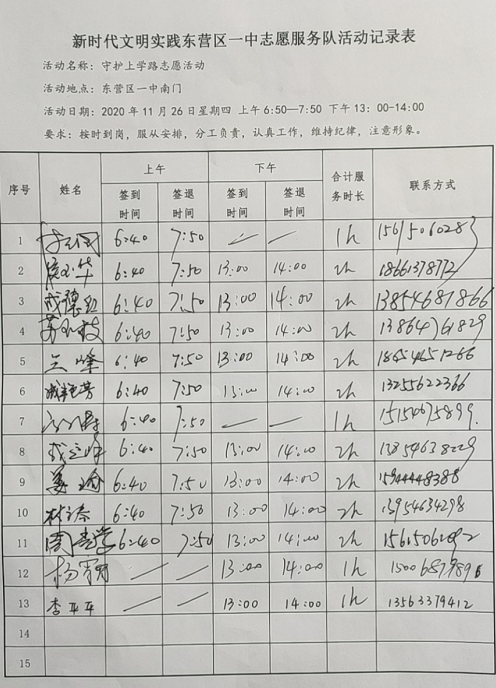 新时代文明实践东营区一中志愿服务队活动记录表
活动名称：守护上学路志愿活动
活动地点：东营区一中南门
活动日期：2020 年 11 月 26 日星期四 上午 6:50—7:50 下午 13：00-14:00
要求：按时到岗，服从安排，分工负责，认真工作，维持纪律，注意形象。
序号 姓名 上午 下午 合计服务时长 联系方式
签到时间 签退时间 签到时间 签退时间
1 6:40 7:50 — — 1h
2 6:40 7:50 13:00 14:00 2h 18661378772
3 6:40 7:50 13:00 14:00 2h 13854687866
4 6:40 7:50 13:00 14:00 2h 13864761829
5 兰峰 6:40 7:50 13:00 14:00 2h
6 6:40 7:50 13:00 14:00 2h 13255622366
7 6:40 7:50 — — 1h
8 6:40 7:50 13:00 14:00 2h
9 6:40 7:50 13:00 14:00 2h
10 6:40 7:50 13:00 14:00 2h 13954634298
11 6:40 7:50 13:00 14:00 2h
12 杨 — — 13:00 14:00 1h 15006879896
13 李平平 — — 13:00 14:00 1h 13563379412
14
15